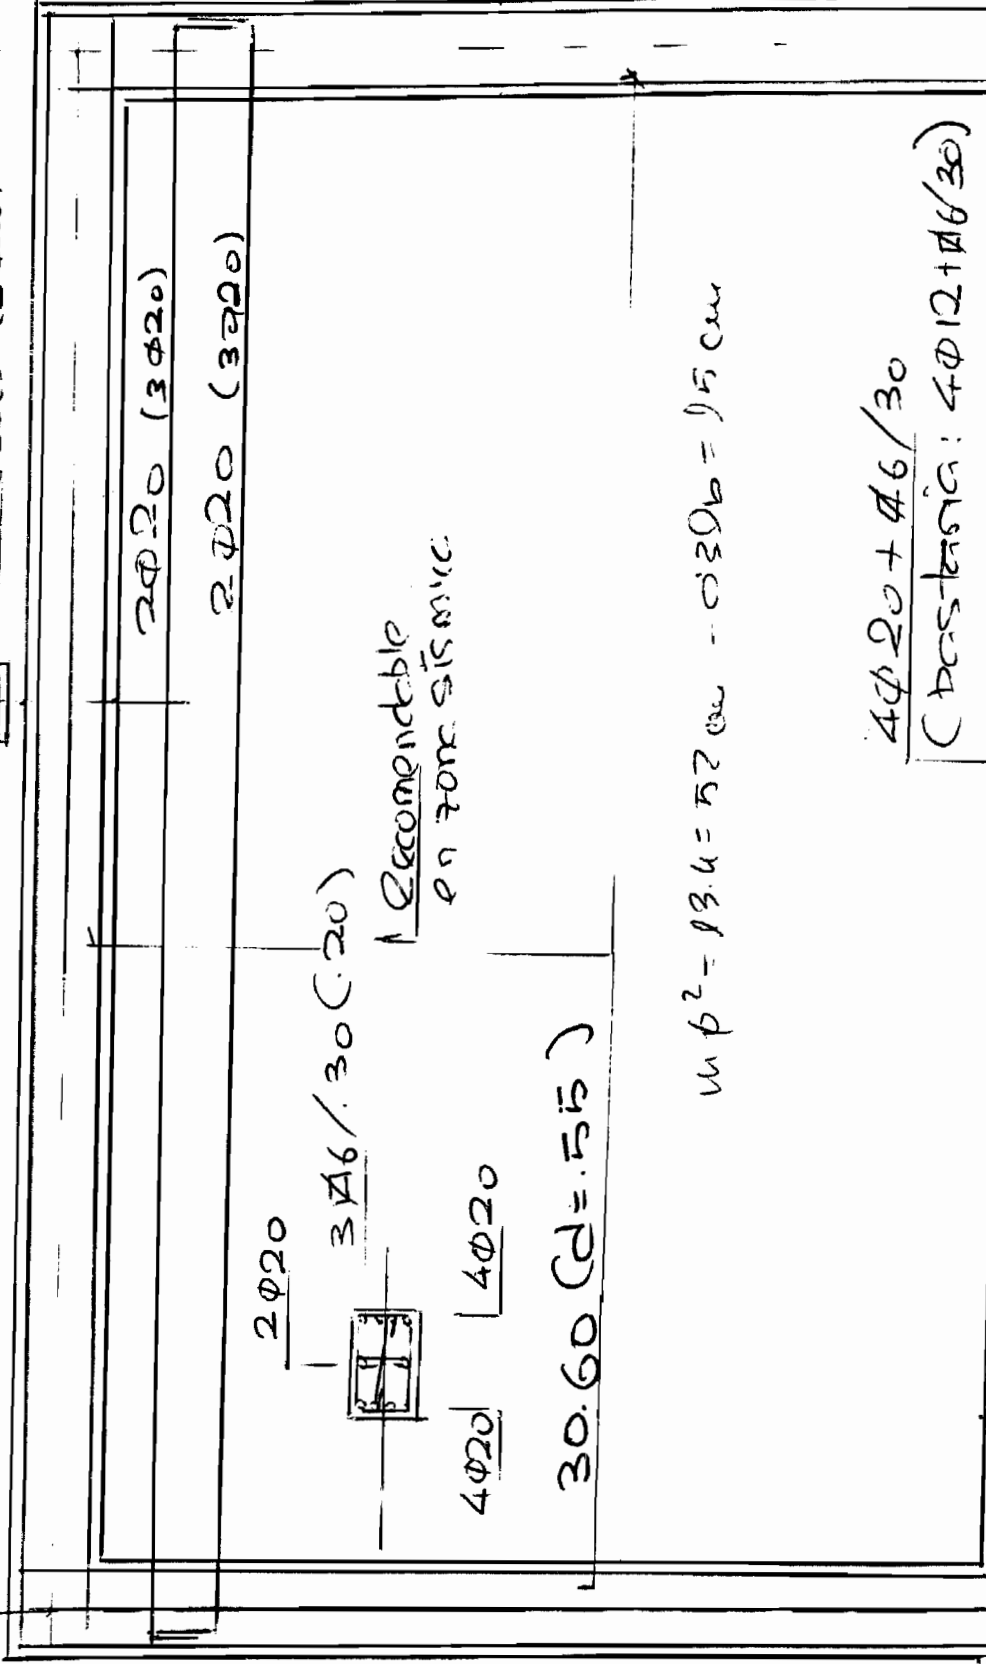 2Φ20 (3Φ20)
2Φ20 (3Φ20)
2Φ20
3⌀6/.30 (.20)
Recomendable
en zona sísmica
4Φ20
4Φ20
30.60 (d=.55)
mϕ² = 13.4 = 52 cm
4Φ20 + ⌀6/30
(bastaría: 4Φ12+⌀6/30)